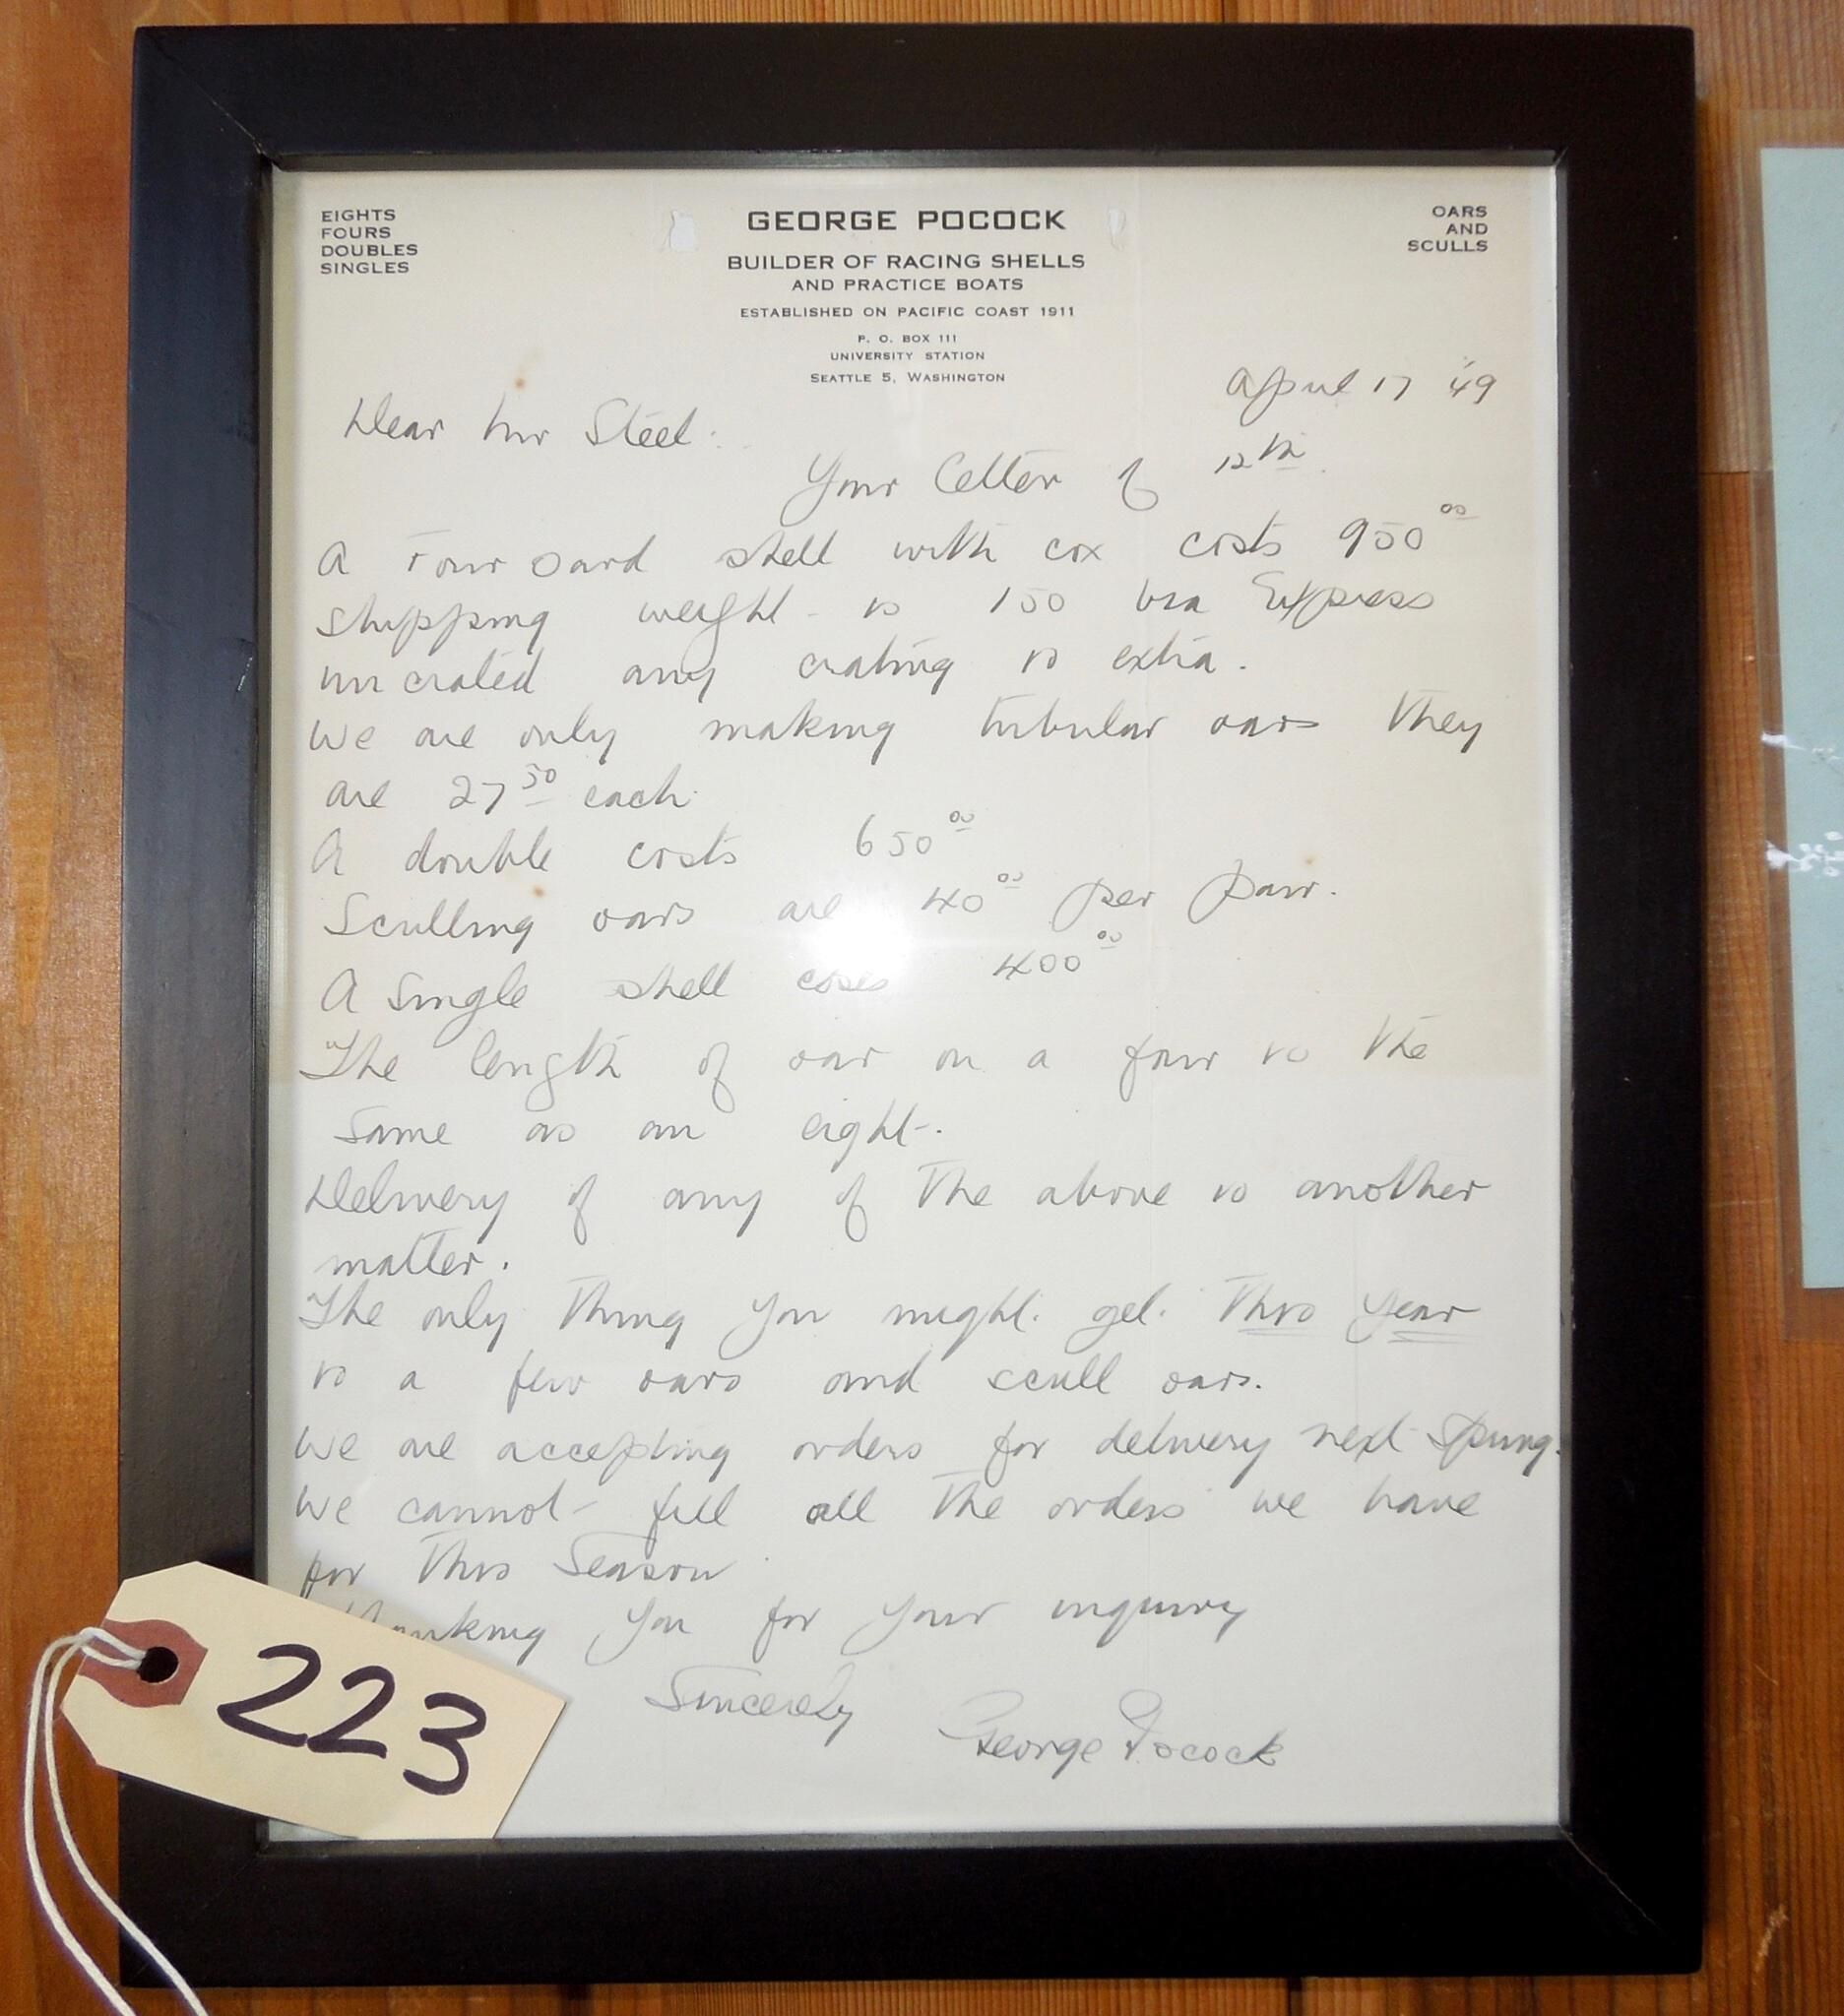 EIGHTS
FOURS
DOUBLES
SINGLES
GEORGE POCOCK
BUILDER OF RACING SHELLS
AND PRACTICE BOATS
ESTABLISHED ON PACIFIC COAST 1911
P. O. BOX 111
UNIVERSITY STATION
SEATTLE 5, WASHINGTON
OARS
AND
SCULLS
April 17 '49
Dear Mr Steel:
Your letter of 12th.
A Four oard shell with cox costs 950 00
shipping weight is 150 via Express
uncrated any crating is extra.
We are only making tubular oars they
are 27 50 each.
A double costs 650 00
Sculling oars are 40 00 per pair.
A Single shell coses 400 00
The length of oar on a four is the
same as an eight.
Delivery of any of the above is another
matter.
The only thing you might get this year
is a few oars and scull oars.
We are accepting orders for delivery next Spring.
We cannot fill all the orders we have
for this Season
Thanking you for your inquiry
Sincerely
George Pocock
223